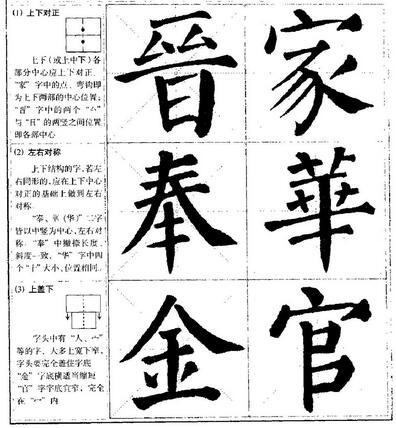 (1) 上下对正
上下(或上中下)各
部分中心应上下对正.
"家"字中的点、弯钩即
为上下两部的中心位置;
"晋"字中的两个"厶"
与"日"的两竖之间位置
即各部中心
晉 家
(2) 左右对称
上下结构的字,若左
右同形的,应在上下中心
对正的基础上做到左右
对称.
"奉、華(华)"二字
皆以中竖为中心,左右对
称."奉"中撇捺长度、
斜度一致,"华"字中四
个"十"大小、位置相同.
奉 華
(3) 上盖下
字头中有"人、宀"
等的字,大多上宽下窄,
字头要完全盖住字底
"金"字底横适当缩短
"官"字字底宜窄,完全
在"宀"内
金 官